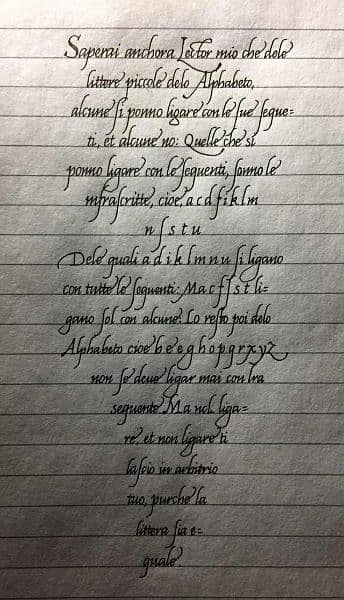 Saperai anchora Lector mio che dele
littere piccole delo Alphabeto,
alcune ſi ponno ligare con le ſue ſegue=
ti, et alcune no: Quelle che si
ponno ligare con le ſequenti, ſonno le
infraſcritte, cioe, a c d f i k l m
n ſ s t u
Dele quali a d i k l m n u ſi ligano
con tutte le ſequenti: Ma c f ſ s t li=
gano ſol con alcune: Lo reſto poi delo
Alphabeto cioe b e g h o p q r x y z
non ſe deue ligar mai con lra
seguente. Ma nel liga=
re, et non ligare ti
laſcio in arbitrio
tuo, purche la
littera ſia e=
quale.